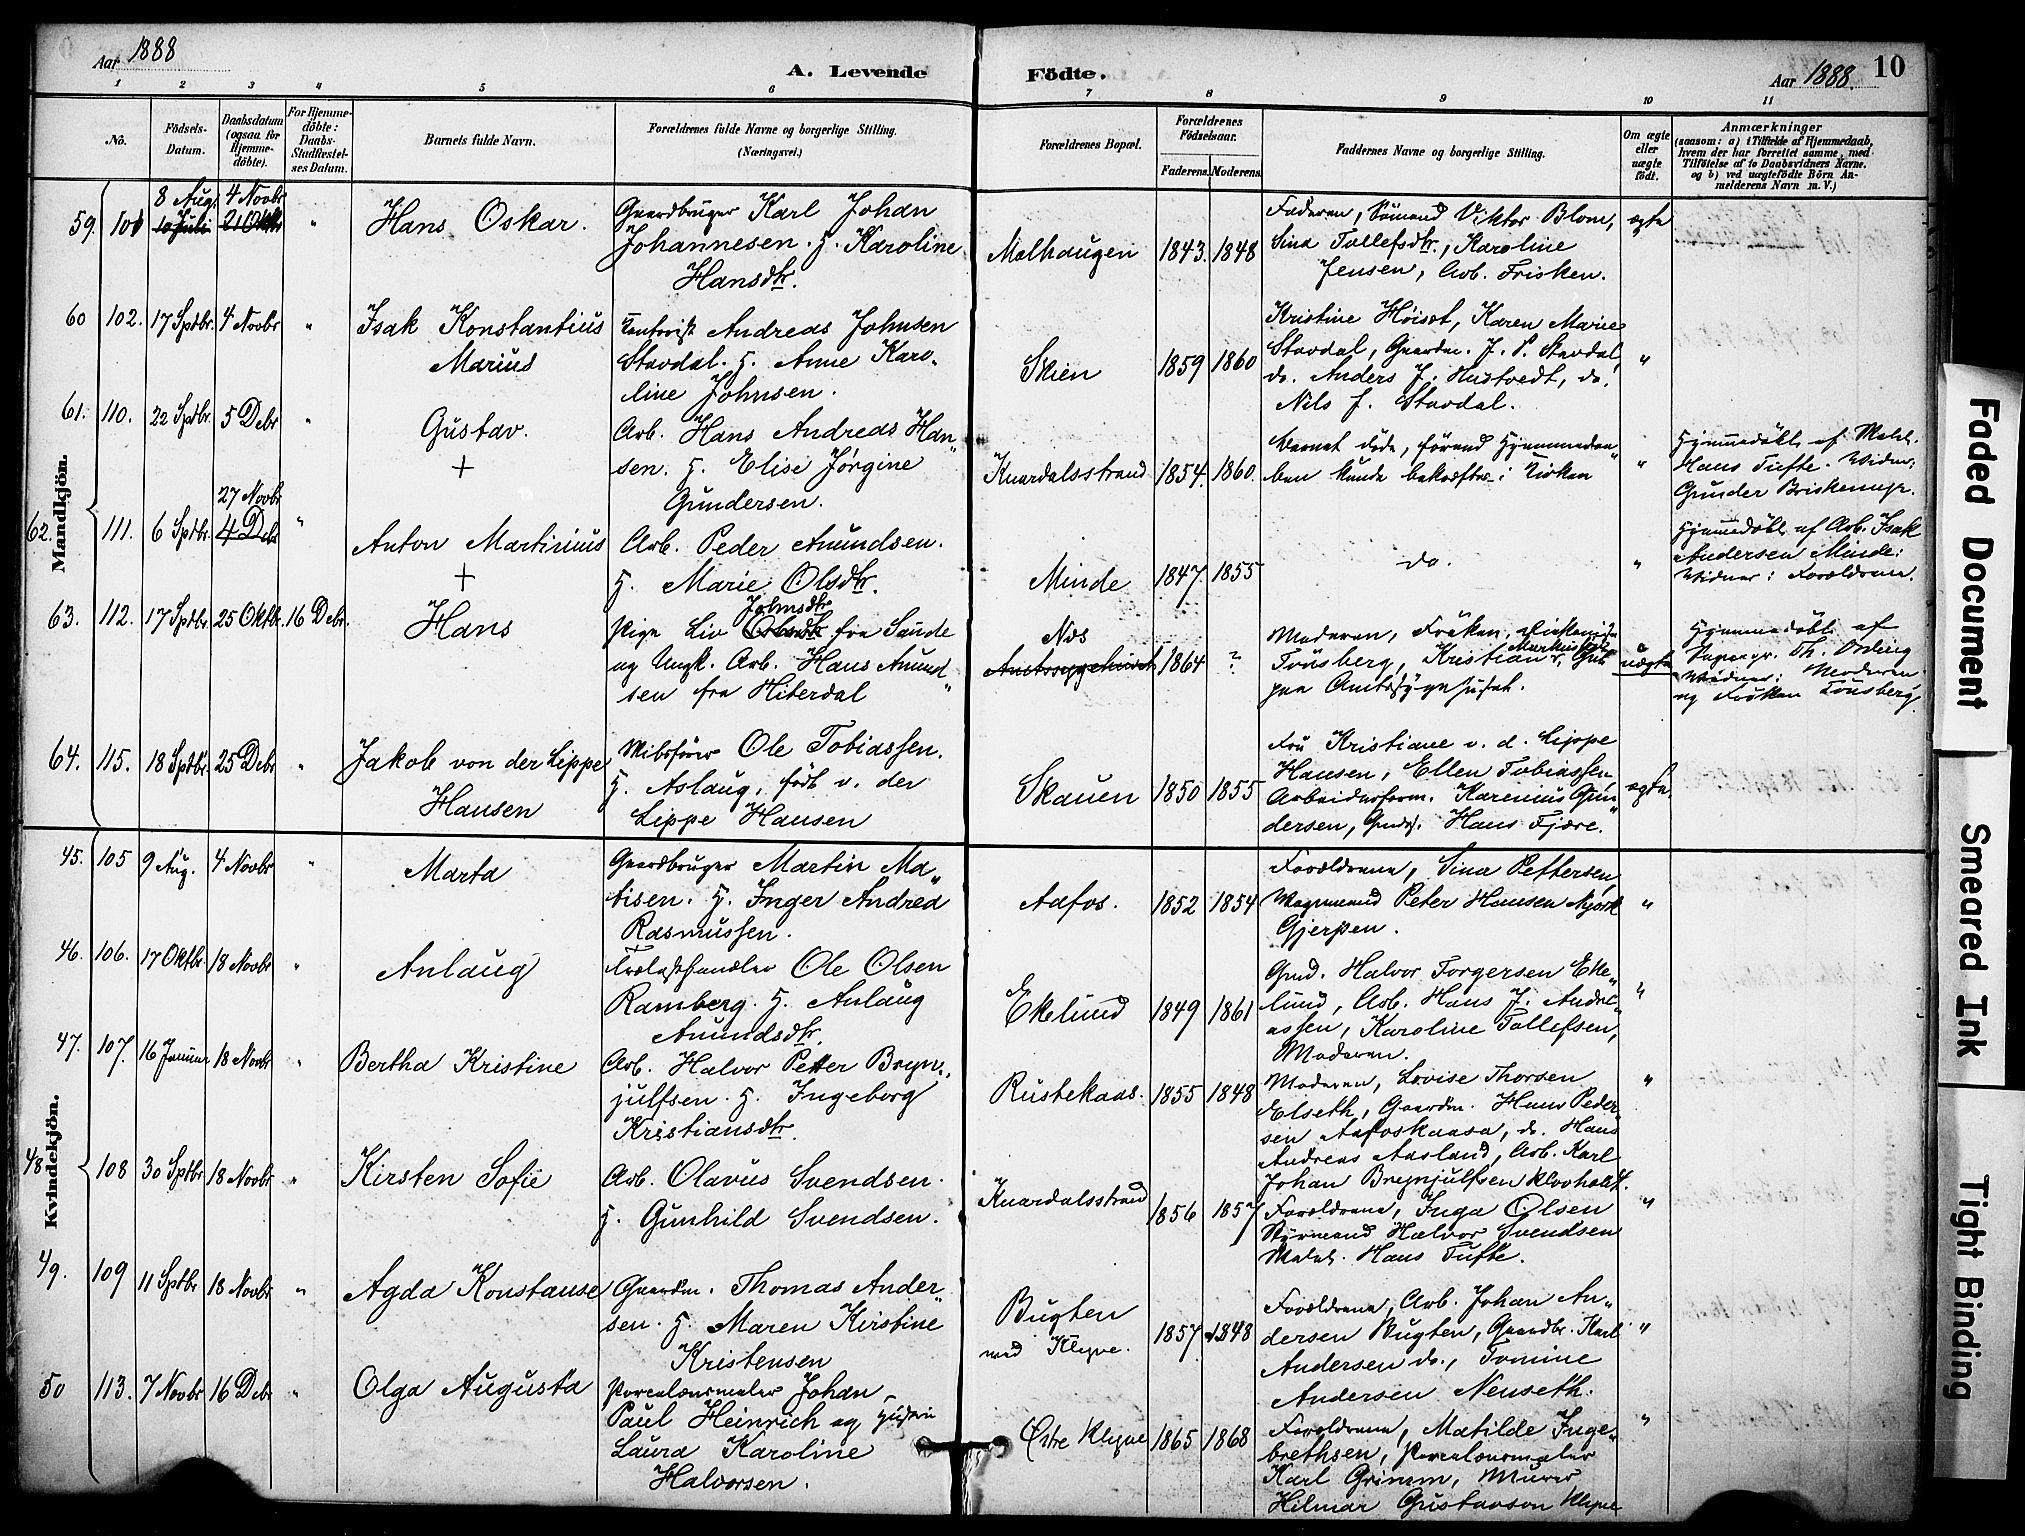 Aar 1888
A. Levende Födte.
Aar 1888. 10
1 2 3 4 5 6 7 8 9 10 11
No.
Födsels-
Datum.
Daabsdatum
(ogsaa for
Hjemme-
döbte).
For Hjemme-
döbte:
Daabs-
Stadfæstel-
ses Datum.
Barnets fulde Navn.
Forældrenes fulde Navne og borgerlige Stilling.
(Næringsvei.)
Forældrenes Bopæl.
Forældrenes
Födselsaar.
Faderens. Moderens.
Faddernes Navne og borgerlige Stilling.
Om ægte
eller
uægte
födt.
Anmærkninger
(saasom: a) i Tilfælde af Hjemmedaab,
hvem der har forrettet samme, med
Tilföielse af to Daabsvidners Navne.
og b) ved uægtefödte Börn An-
melderens Navn m. V.)
Mandkjön.
59. 101 8 Aug. 4 Novbr
10 Juli 21 Oktbr "
Hans Oskar.
Gaardbruger Karl Johan
Johannesen. H. Karoline
Hansdtr.
Mælhaugen 1843. 1848
Faderen, Sömand Viktor Blom,
Sina Tollefsdtr., Karoline
Jensen, Arb. Frisken.
ægte
60 102. 17 Sptbr. 4 Novbr "
Isak Konstantius
Marius
Kontorist Andreas Johnsen
Stavdal. H. Anne Karo-
line Johnsen.
Skien 1859 1860
Kristine Höiset, Karen Marie
Stavdal, Gaardm. J. P. Stavdal,
do. Anders J. Hustvedt, do.
Nils J. Stavdal.
"
61. 110. 22 Sptbr. 5 Debr "
Gustav.
+
Arb. Hans Andreas Han-
sen. H. Elise Jørgine
Gundersen.
Knardalsstrand 1854. 1860.
Barnet döde, förend Hjemmedaa-
ben kunde bekræftes i Kirken
"
Hjemmedöbt af
Hans Tufte. Vidner:
Gunder
62. 111. 6 Sptbr. 27 Novbr
4 Debr "
Anton Martinius
+
Arb. Peder Amundsen.
H. Marie Olsdtr.
Minde 1847. 1855
do.
"
Hjemmedöbt af Arb. Isak
Andersen Minde:
Vidner: Forældrene.
63. 112. 17 Sptbr. 25 Oktbr. 16 Debr.
Hans
Johnsdtr
Pige Liv Olsdtr fra Sande
og Ungk. Arb. Hans Amund-
sen fra Hiterdal
Næs
Amtssygehuset 1864 ?
Moderen, Fröken,
Tönsberg, Kristian
paa Amtssygehuset.
uægte
Hjemmedöbt af
Th. Ording
Vidner: Moderen
og Fröken Tönsberg.
64. 115. 18 Sptbr. 25 Debr "
Jakob von der Lippe
Hansen
Ole Tobiassen.
H. Aslaug, födt v. der
Lippe Hansen
Skauen 1850 1855
Fru Kristiane v. d. Lippe
Hansen, Ellen Tobiassen,
Arbeiderform. Karenius Gun-
dersen, Hans Fjære.
ægte.
Kvindekjön.
45. 105 9 Aug. 4 Novbr "
Marta
Gaardbruger Martin Ma-
tisen. H. Inger Andrea
Rasmussen.
Aafos. 1852 1854
Forældrene, Sina Pettersen,
Vognmand Peter Hansen
Gjerpen.
"
46. 106. 17 Oktbr. 18 Novbr "
Anlaug
Trælasthandler Ole Olsen
Ramberg. H. Anlaug
Amundsdtr.
Ekelund 1849 1861
Halvor Torgersen Eke-
lund, Arb. Hans J. Andre-
assen, Karoline Tollefsen,
Moderen.
"
47. 107. 16 Januar 18 Novbr "
Bertha Kristine
Arb. Halvor Petter Bryn-
julfsen. H. Ingeborg
Kristiansdtr.
Rustekaas. 1855 1848
Moderen, Lovise Thorsen
Elseth, Gaardm. Hans Peder-
sen Aafoskaasa, do. Hans
Andreas Aasland, Arb. Karl
Johan Brynjulfsen Klovholdt.
"
48 108 30 Sptbr 18 Novbr "
Kirsten Sofie
Arb. Olavus Svendsen.
H. Gunhild Svendsen.
Knardalsstrand 1856 1857
Forældrene, Inga Olsen
Styrmand Halvor Svendsen
Hans Tufte.
"
49. 109 11 Sptbr 18 Novbr "
Agda Konstanse
Gaardm. Thomas Ander-
sen. H. Maren Kirstine
Kristensen
Bugten
ved Klyve. 1857. 1848
Forældrene, Arb. Johan An-
dersen Bugten, Gaardbr. Karl
Andersen do., Tomine
Andersen Nenseth.
"
50 113. 7 Novbr 16 Debr "
Olga Augusta
Porcelænsmaler Johan
Paul Heinrich og Hustru
Laura Karoline
Halvorsen.
Østre Klyve 1865 1868
Forældrene, Matilde Inge-
brethsen, Porcelænsmaler
Karl Grimm, Murer
Hilmar Gustavson Klyve
"
Faded Document
Smeared Ink
Tight Binding